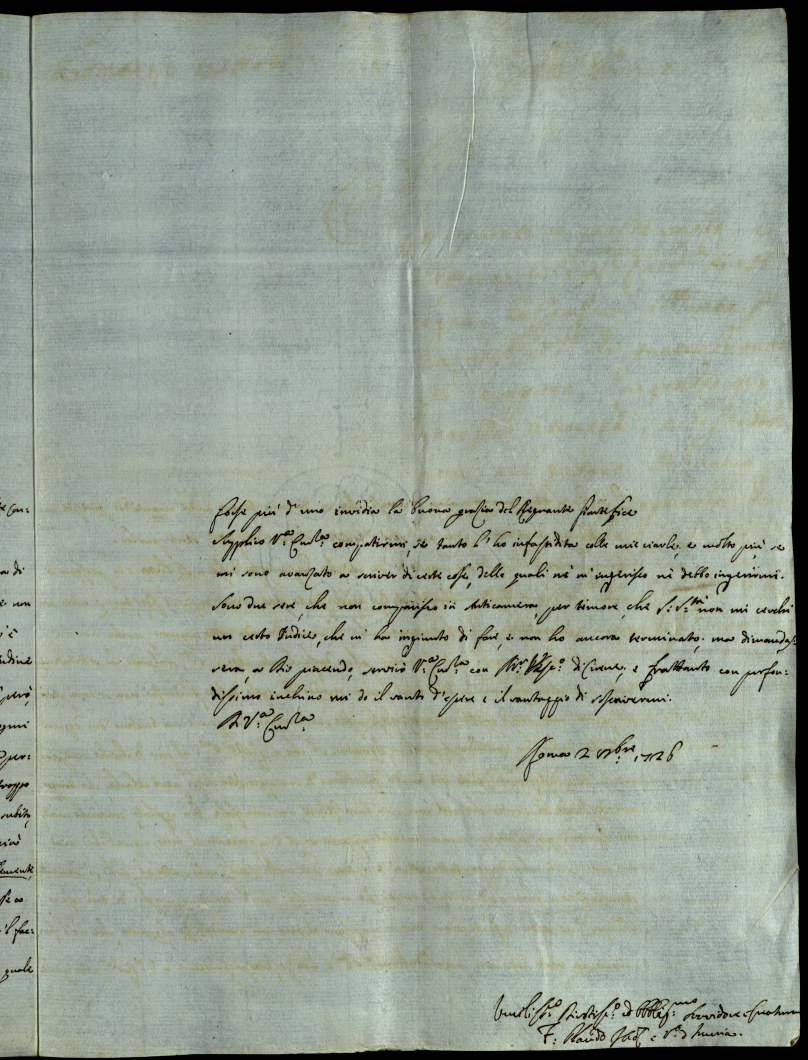 Forse più d'uno invidia la buona grazia del Regnante Pontefice
Supplico V.ra Em.za compatirmi, se tanto l'ho infastidita colle mie ciarle, e molto più se
mi sono avanzato a scriver di certe cose, delle quali nè m'ingerisco nè debbo ingerirmi.
Sono due sere, che non comparisco in Anticamera, per timore, che S. S.tà non mi cerchi
un certo Indice, che m'ha ingiunto di fare, e non ho ancora terminato; ma dimandas-
sera, a Dio piacendo, servirò V.ra Em.za con di Cirene, e frattanto con profon-
dissimo inchino mi do il vanto d'essere e il vantaggio di soscrivermi.
Di V.ra Em.za
Roma 2 1726
Umiliss.o ed Obblig.mo Servidore
F.
re con-
a di
e un
udine
però,
ogni
per-
troppo
subito,
se a
il fac-
quale